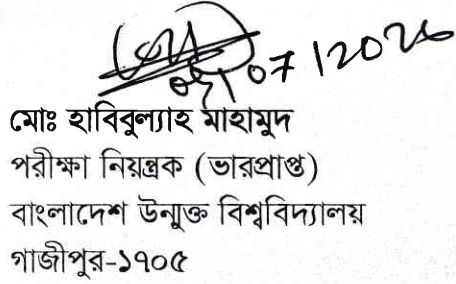 07/2026
মোঃ হাবিবুল্যাহ মাহামুদ
পরীক্ষা নিয়ন্ত্রক (ভারপ্রাপ্ত)
বাংলাদেশ উন্মুক্ত বিশ্ববিদ্যালয়
গাজীপুর-১৭০৫